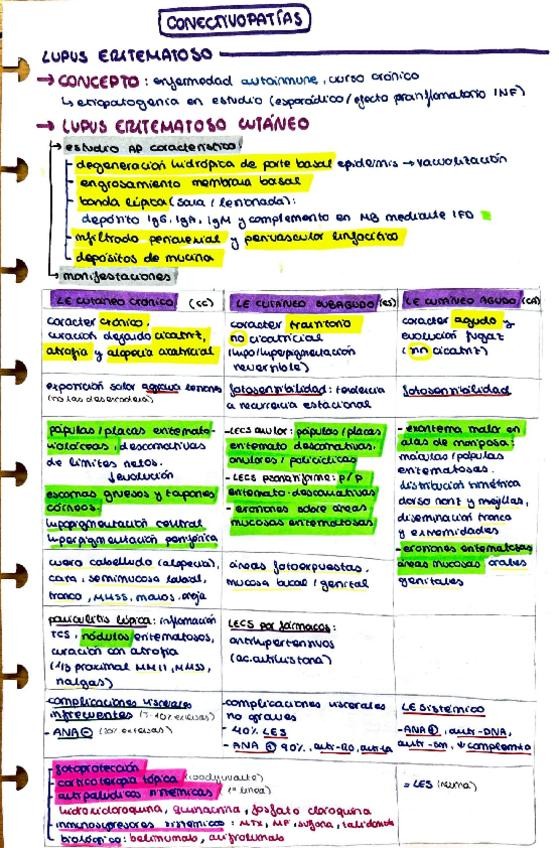 CONECTIVOPATÍAS
LUPUS ERITEMATOSO
→ CONCEPTO: enfermedad autoinmune, curso crónico
↳ etiopatogenia en estudio (esporádico/efecto proinflamatorio INF)
→ LUPUS ERITEMATOSO CUTÁNEO
estudio AP característico:
- degeneración hidrópica de parte basal epidermis → vacuolización
- engrosamiento membrana basal
- banda lúpica (sana/lesionada):
depósito IgG, IgA, IgM y complemento en MB mediante IFD
- infiltrado perianexial y perivascular linfocítico
- depósitos de mucina
manifestaciones
LE CUTÁNEO CRÓNICO (CC)
carácter crónico,
curación dejando cicatriz,
atrofia y alopecia cicatricial
exposición solar agrava lesiones
(no las desencadena)
pápulas/placas eritemato-
violáceas, descamativas
de límites netos.
↓ evolución
escamas gruesas y tapones
córneos.
hipopigmentación central
hiperpigmentación periférica
cuero cabelludo (alopecia),
cara, semimucosa labial,
tronco, MMSS, manos, oreja
paniculitis lúpica: inflamación
TCS, nódulos eritematosos,
curación con atrofia
(1/3 proximal MMII, MMSS,
nalgas)
complicaciones viscerales
infrecuentes
- ANA ⊕
LE CUTÁNEO SUBAGUDO (CS)
carácter transitorio
no cicatricial
(hipo/hiperpigmentación
reversible)
fotosensibilidad: tendencia
a recurrencia estacional
- LECS anular: pápulas/placas
eritemato descamativas,
anulares/policíclicas
- LECS psoriasiforme: p/p
eritemato-descamativas
- erosiones sobre áreas
mucosas eritematosas
áreas fotoexpuestas,
mucosa bucal/genital
LECS por fármacos:
antihipertensivos
(ac. antihistona)
complicaciones viscerales
no graves
- 40% LES
- ANA ⊕ 90%, anti-Ro, anti-La
LE CUTÁNEO AGUDO (CA)
carácter agudo y
evolución fugaz
(sin cicatriz)
fotosensibilidad
- exantema malar en
alas de mariposa:
máculas/pápulas
eritematosas.
distribución simétrica
dorso nariz y mejillas,
diseminación tronco
y extremidades
- erosiones eritematosas
áreas mucosas orales
genitales
LE SISTÉMICO
- ANA ⊕, anti-DNA,
anti-Sm, ↓ complemento
- fotoprotección
- corticoterapia tópica
- antipalúdicos sistémicos (1ª línea)
hidroxicloroquina, quinacrina, fosfato cloroquina
- inmunosupresores sistémicos: MTX, MF, sulfona, talidomida
- biológico: belimumab, anifrolumab
= LES